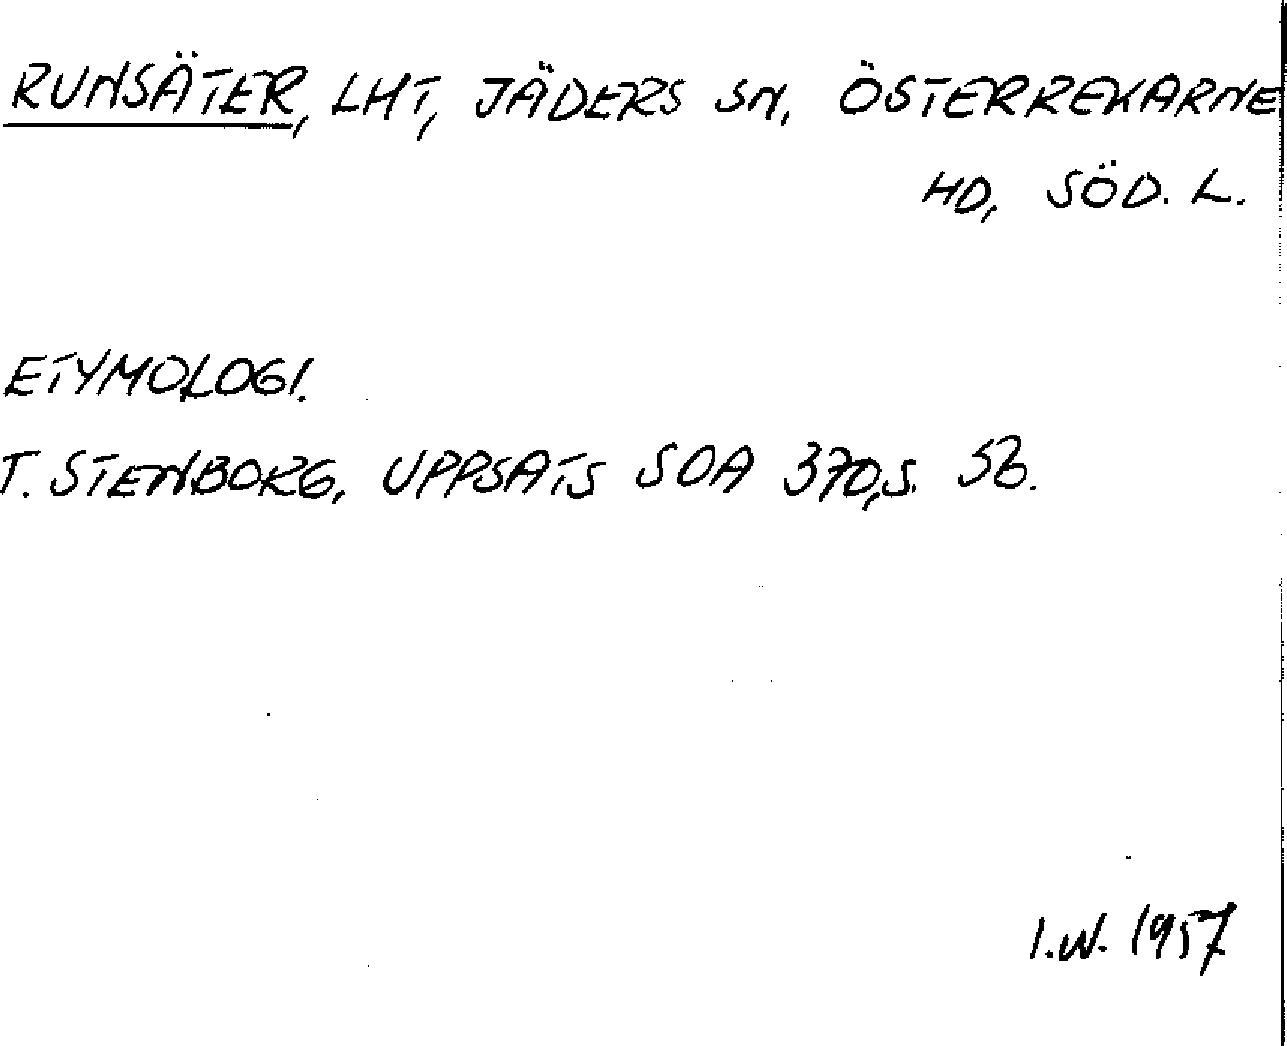 RUNSÄTER, LHT, JÄDERS SN, ÖSTERREKARNE
HD, SÖD. L.
ETYMOLOGI.
T. STENBORG, UPPSATS SOA 370, S. 56.
I.W. 1957